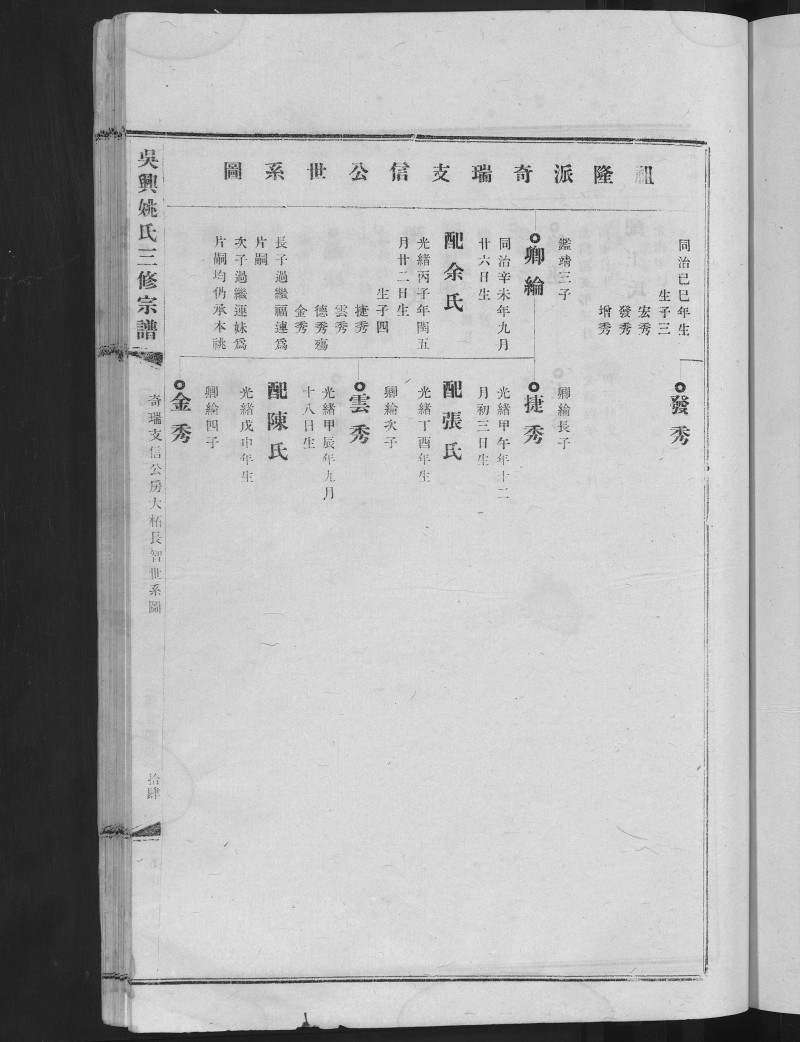 祖隆派奇瑞支信公世系圖
同治己巳年生
生子三
宏秀
發秀
增秀
鑑靖三子
卿綸
同治辛未年九月
廿六日生
配余氏
光緒丙子年閏五
月廿二日生
生子四
捷秀
雲秀
德秀殤
金秀
長子過繼福連爲
片嗣
次子過繼運妹爲
片嗣均仍承本祧
發秀
卿綸長子
捷秀
光緒甲午年十二
月初三日生
配張氏
光緒丁酉年生
卿綸次子
雲秀
光緒甲辰年九月
十八日生
配陳氏
光緒戊申年生
卿綸四子
金秀
吳興姚氏三修宗譜
奇瑞支信公房大柘長智世系圖
拾肆